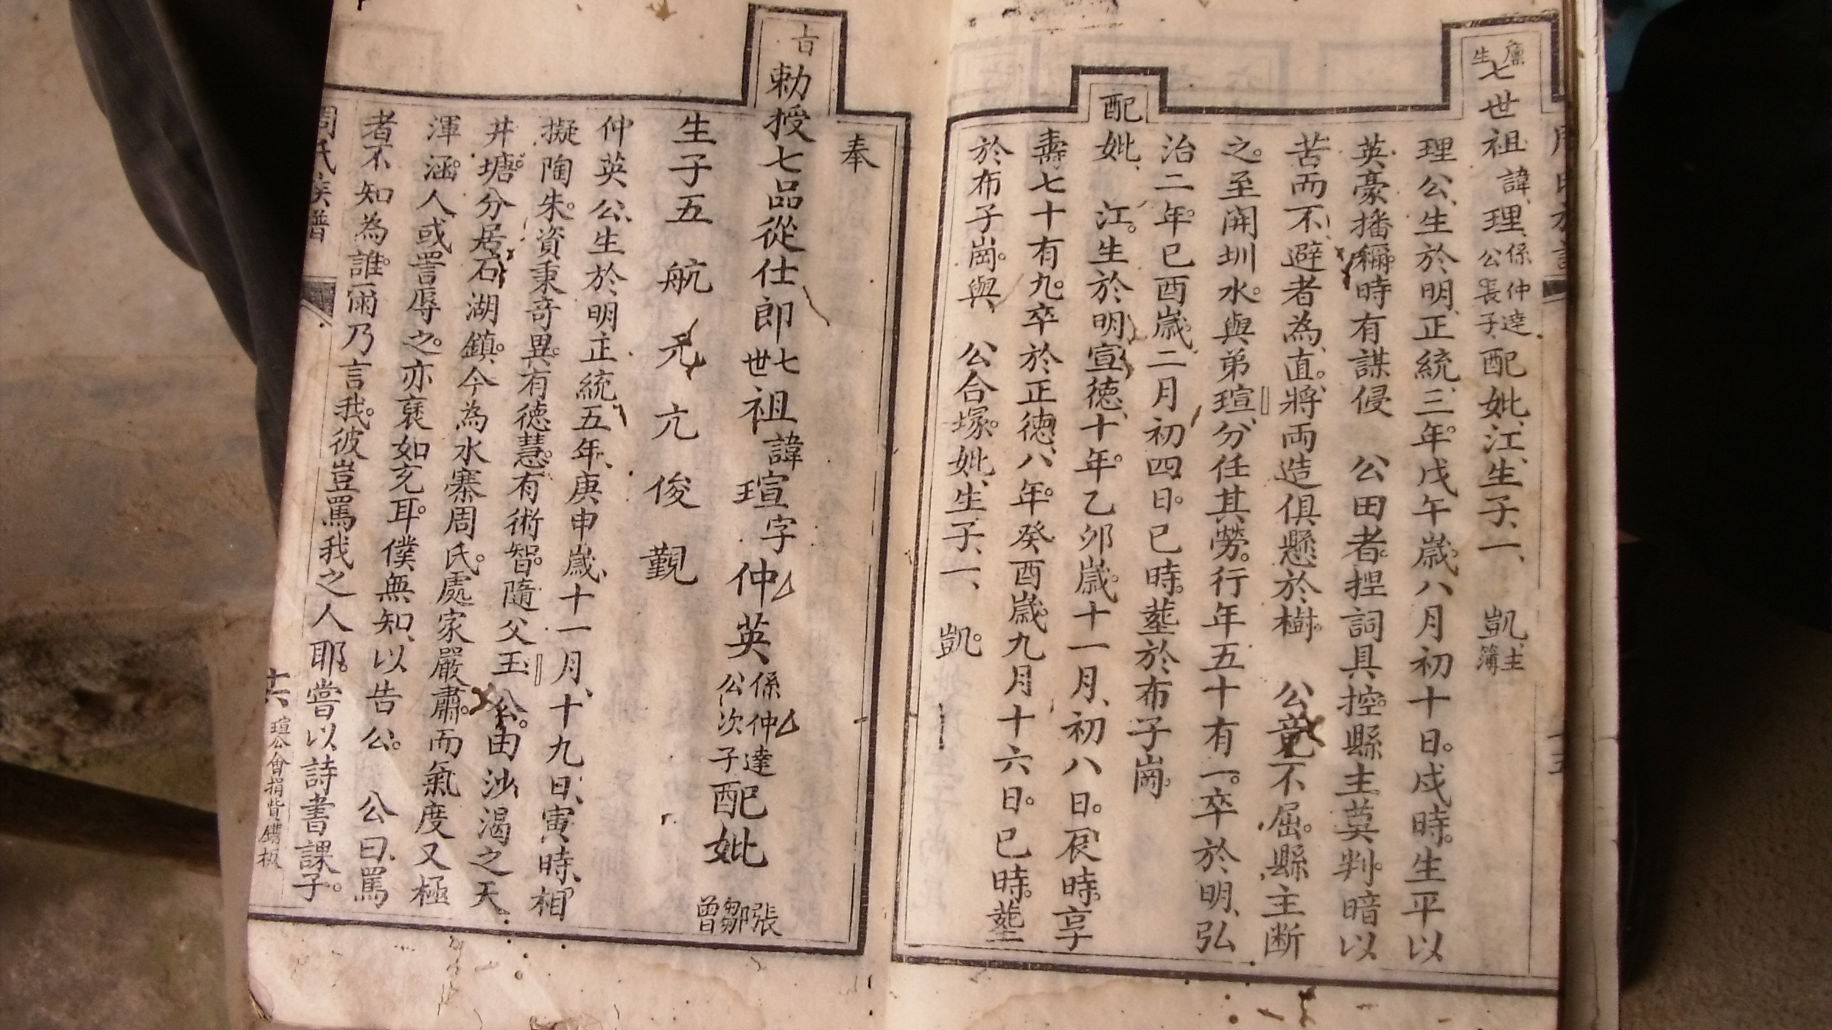 廩生
七世祖諱理係仲達公長子配妣江生子一　凱主簿
理公生於明正統三年戊午歲八月初十日戌時生平以
英豪播稱時有謀侵　公田者捏詞具控縣主莫判暗以
苦而不避者為直將両造俱懸於樹　公竟不屈縣主断
之至開圳水與弟瑄分任其勞行年五十有一卒於明弘
治二年已酉歲二月初四日已時塟於布子崗
配妣　江生於明宣德十年乙卯歲十一月初八日辰時享
壽七十有九卒於正德八年癸酉歲九月十六日已時塟
於布子崗與　公合塚妣生子一　凱
奉
旨勅授七品從仕郎七世祖諱瑄字仲英係仲達公次子配妣張鄒曾
生子五　航　元　亢　俊　覲
仲英公生於明正統五年庚申歲十一月十九日寅時相
擬陶朱資秉奇異有德慧有術智隨父玉公由沙渴之天
井塘分居石湖鎮今為水寨周氏處家嚴肅而氣度又極
渾涵人或詈辱之亦裒如充耳僕無知以告公　公曰罵
者不知為誰爾乃言我彼豈罵我之人耶嘗以詩書課子
周氏族譜　十六　瑄公會捐貲鐫板